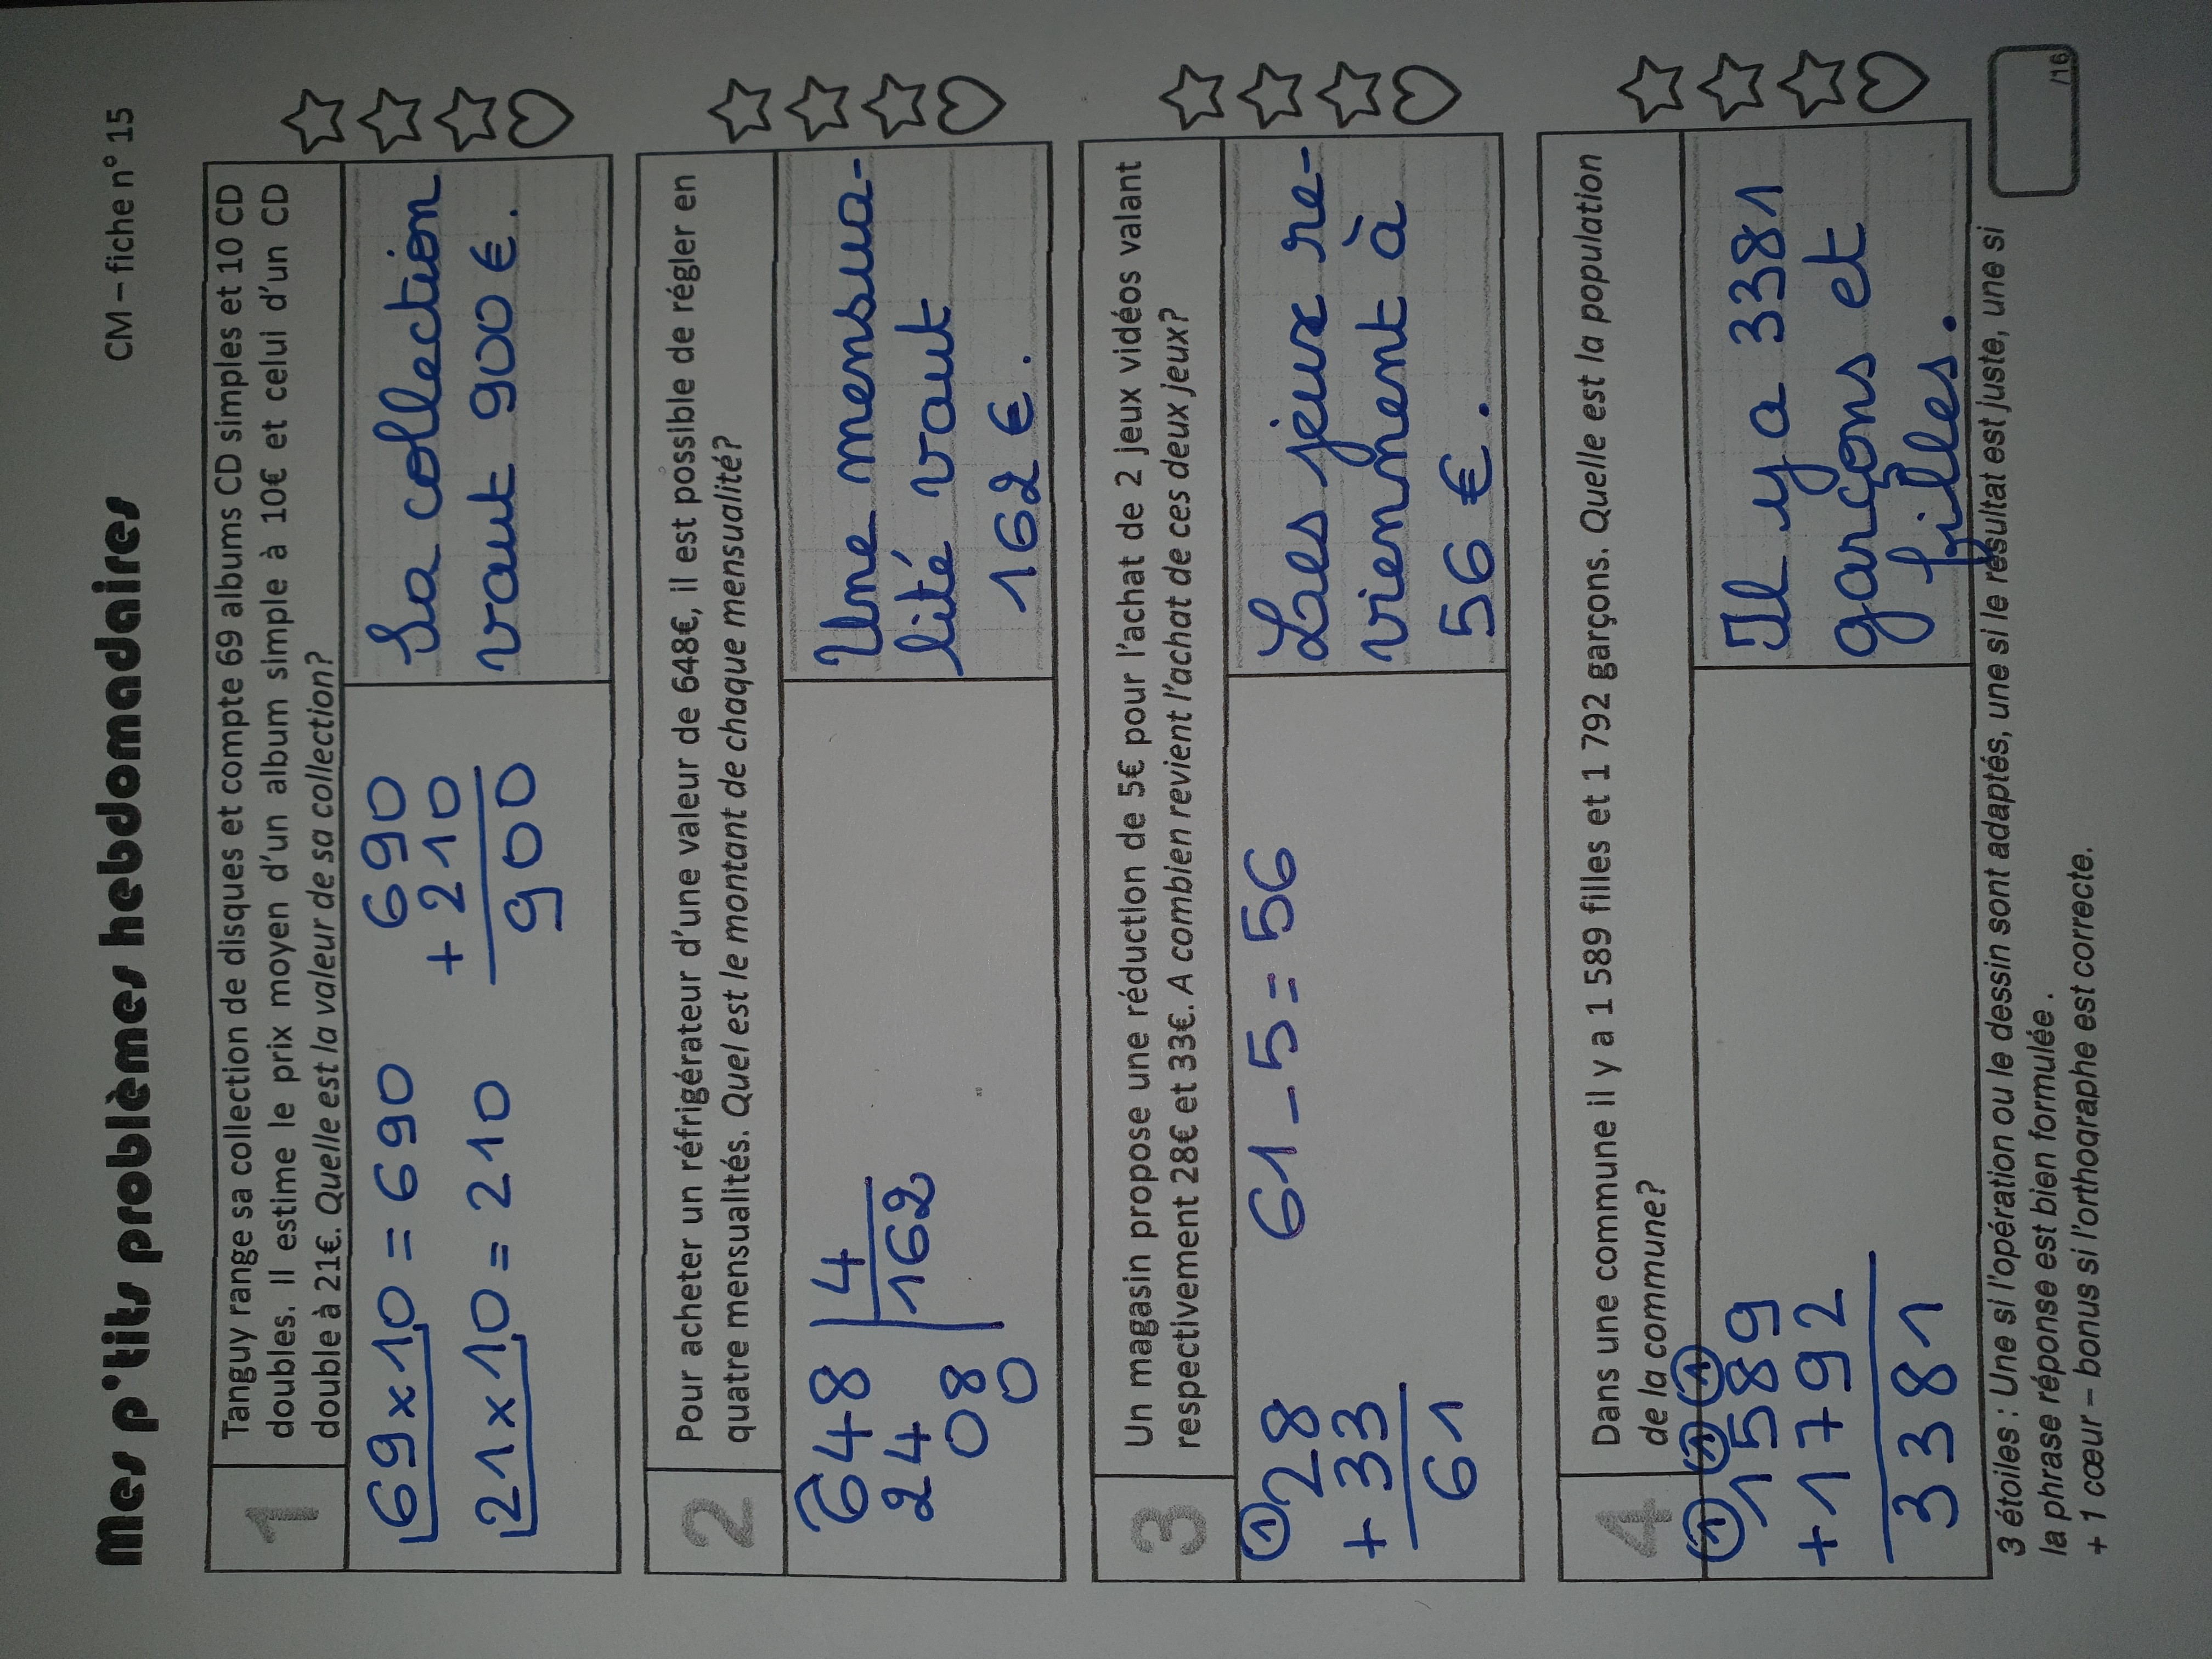 Mes p'tits problèmes hebdomadaires CM – fiche n° 15
1
Tanguy range sa collection de disques et compte 69 albums CD simples et 10 CD
doubles. Il estime le prix moyen d'un album simple à 10€ et celui d'un CD
double à 21€. Quelle est la valeur de sa collection?
69 x 10 = 690
21 x 10 = 210
690
+ 210
900
Sa collection
vaut 900 €.
2
Pour acheter un réfrigérateur d'une valeur de 648€, il est possible de régler en
quatre mensualités. Quel est le montant de chaque mensualité?
648 4
24 162
08
0
Une mensua-
lité vaut
162 €.
3
Un magasin propose une réduction de 5€ pour l'achat de 2 jeux vidéos valant
respectivement 28€ et 33€. A combien revient l'achat de ces deux jeux?
1
28
+ 33
61
61 - 5 = 56
Les jeux re-
viennent à
56 €.
4
Dans une commune il y a 1 589 filles et 1 792 garçons. Quelle est la population
de la commune?
1 1 1
1589
+1792
3381
Il y a 3381
garçons et
filles.
3 étoiles : Une si l'opération ou le dessin sont adaptés, une si le résultat est juste, une si
la phrase réponse est bien formulée .
+ 1 cœur – bonus si l'orthographe est correcte.
/16